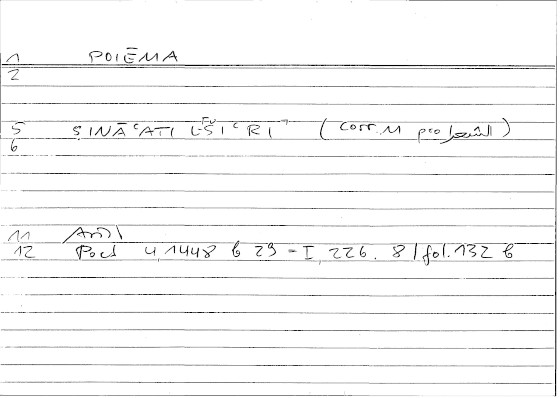 1 POIĒMA
2
5 ṢINĀʿATI L-ŠIʿRI (corr. M pro الشعر)
6
11 Arist
12 Poet 4,1448 b 29 - I, 226. 8 / fol. 132 b